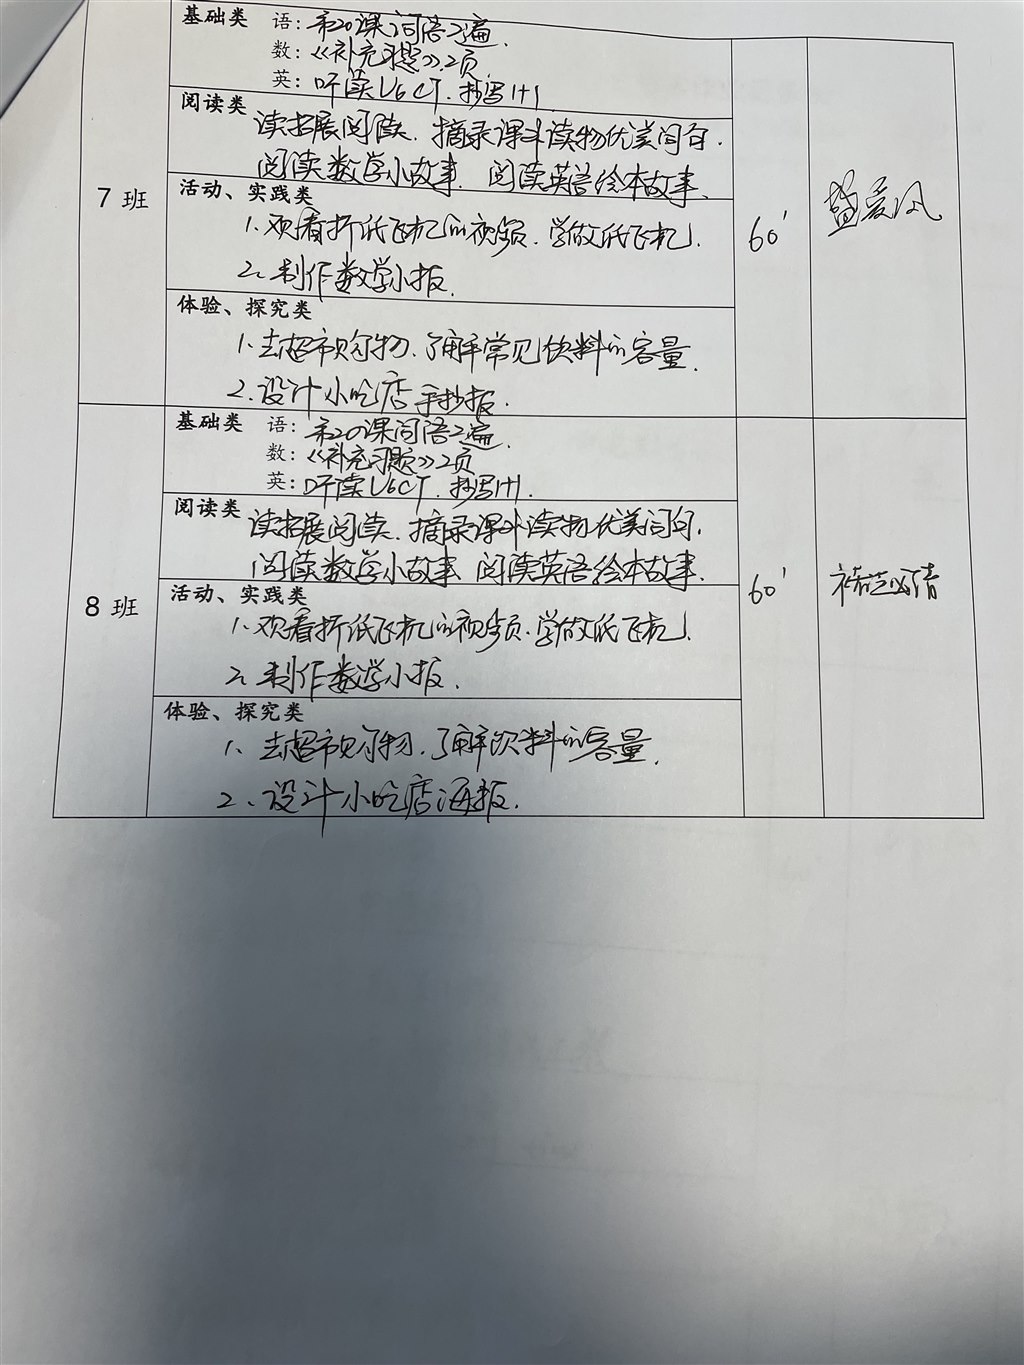 基础类 语:第20课词语2遍.
数:《补充习题》2页.
英:听读U6CT.抄写1+1.
阅读类
读拓展阅读.摘录课外读物优美词句.
阅读数学小故事.阅读英语绘本故事.
7 班
活动、实践类
1.观看折纸飞机的视频.学做纸飞机.
60'
盛爱凤
2.制作数学小报.
体验、探究类
1.去超市购物.了解常见饮料的容量.
2.设计小吃店手抄报.
基础类 语:第20课词语2遍.
数:《补充习题》2页
英:听读U6CT.抄写1+1.
阅读类
读拓展阅读.摘录课外读物优美词句.
阅读数学小故事 阅读英语绘本故事.
8 班
活动、实践类
60'
1.观看折纸飞机的视频.学做纸飞机.
2.制作数学小报.
体验、探究类
1.去超市购物.了解饮料的容量.
2.设计小吃店海报.